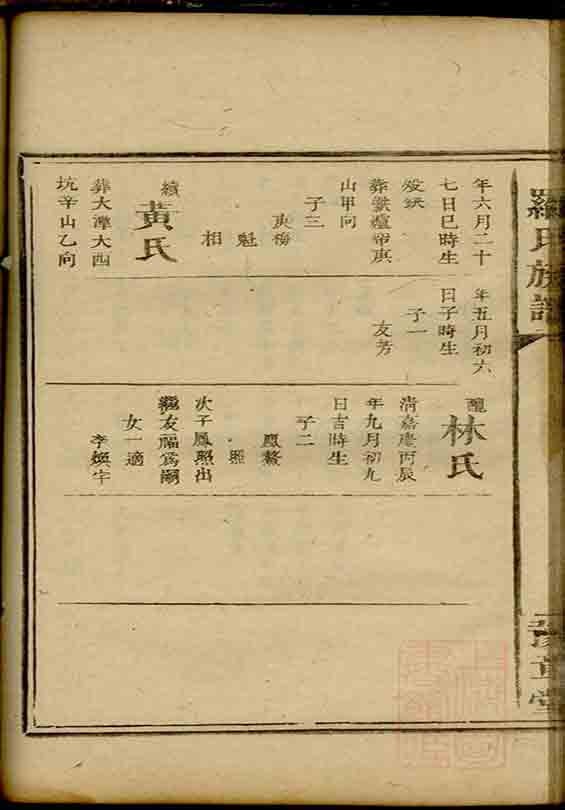 羅氏族譜
豫章堂
年六月二十
七日巳時生
歿缺
葬
山甲向
子三
庚梅
魁
相
續
黃氏
葬大潭大西
坑辛山乙向
年五月初六
日子時生
子一
友芳
醮
林氏
清嘉慶丙辰
年九月初九
日吉時生
子二
鳳鰲
照
次子鳳照出
繼友福為嗣
女一適
李煥宇